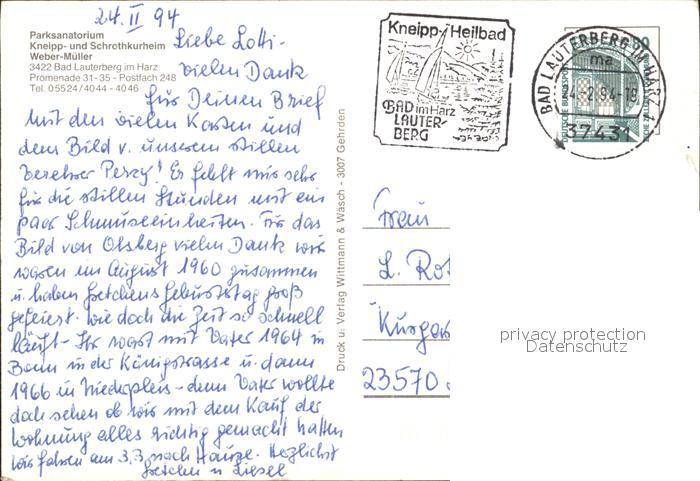 24. II 94
Parksanatorium
Kneipp- und Schrothkurheim
Weber-Müller
3422 Bad Lauterberg im Harz
Promenade 31-35 - Postfach 248
Tel. 05524/4044 - 4046
Liebe Lotti -
vielen Dank
für Deinen Brief
mit den vielen Karten und
dem Bild v. unserem stillen
Verehrer Percy! Er fehlt mir sehr
für die stillen Stunden mit ein
paar Schmuseeinheiten. Für das
Bild von Olsberg vielen Dank wir
waren im August 1960 zusammen
u. haben Gretchens Geburtstag groß
gefeiert. Wie doch die Zeit so schnell
läuft - Ihr wart mit Vater 1964 in
Bonn in der Königstrasse u. dann
1966 in Niederpleis - denn Vater wollte
doch sehen ob wir mit dem Kauf der
Wohnung alles richtig gemacht hatten
wir fahren am 3.3. nach Hause. Herzlichst
Gretchen u Liesel
Druck u. Verlag Wittmann & Wäsch - 3007 Gehrden
Kneipp-Heilbad
BAD im Harz
LAUTER-
BERG
BAD LAUTERBERG IM HARZ 1
ma
24.-2.94-18
37431
DEUTSCHE BUNDESPOST
Frau
L. Rot
Kurgar
23570
privacy protection
Datenschutz